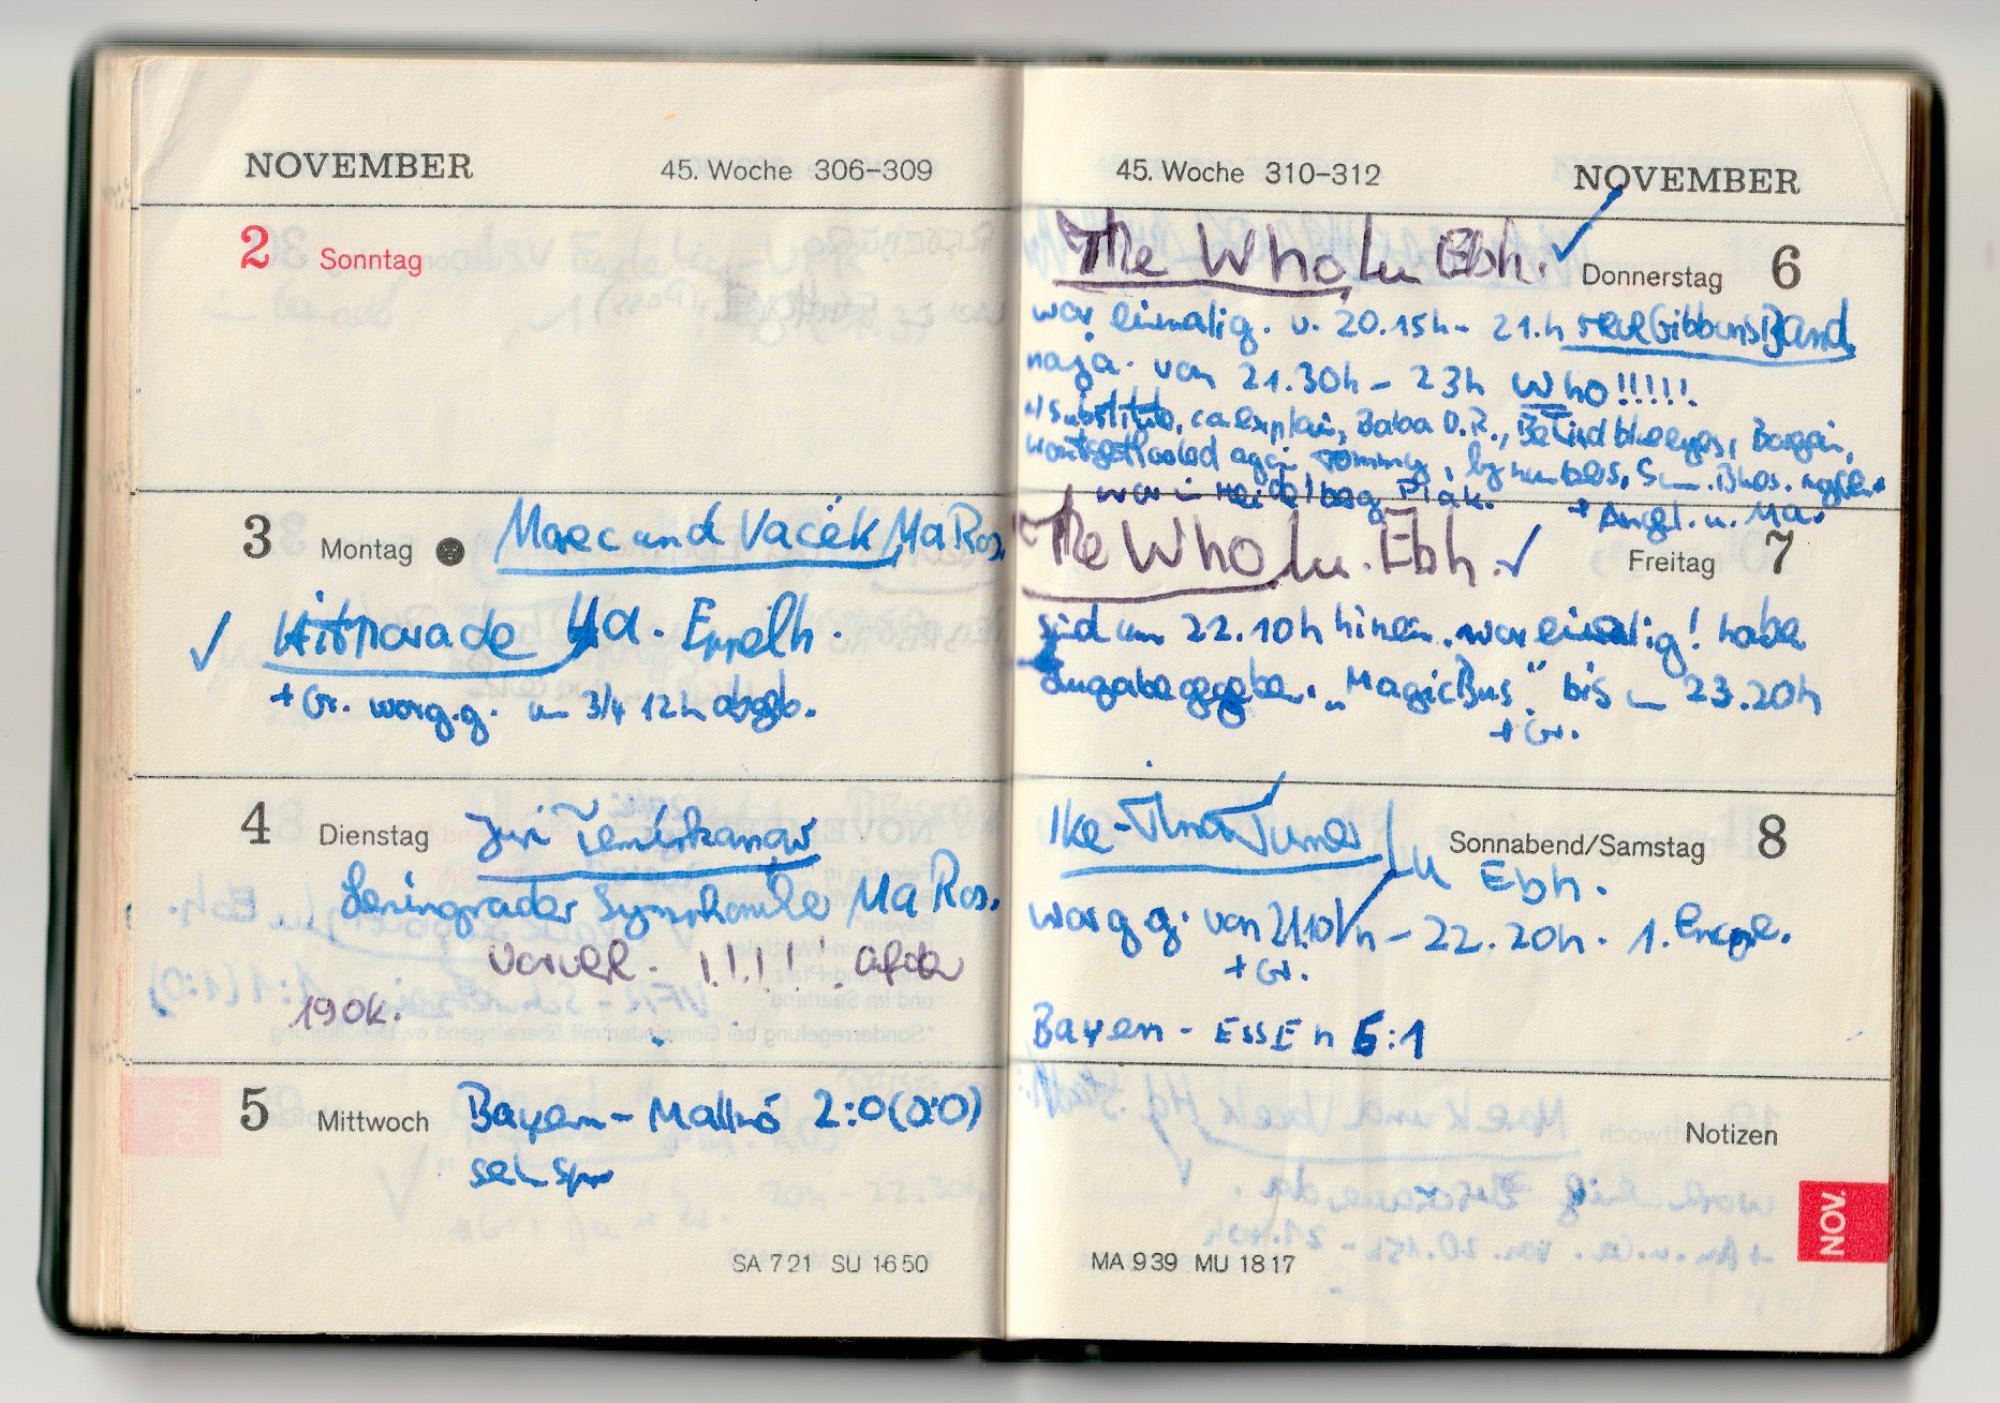 NOVEMBER 45. Woche 306–309
2 Sonntag
3 Montag Marc und Vacek, Ma Ros.
✓ Hitparade Ma. Eppelh.
+ Gr. war g.g. um 3/4 12h abgeb.
4 Dienstag Juri Temirkanow
Leningrader Symphonike Ma Ros.
Vorverk. !!!!
190k.
5 Mittwoch Bayern – Malmö 2:0 (0:0)
SA 7 21 SU 16 50
45. Woche 310–312 NOVEMBER
The Who Lu Ebh. ✓ Donnerstag 6
war einmalig. v. 20.15h – 21.h Gibbons Band
naja. von 21.30h – 23h Who!!!!!
Substitute, ca explain, Baba O.R., Behind blue eyes, Bargain,
wontgetfooled again Tommy, by numbers,
war in Heidelberg Plak. + Angl. u. Ma.
The Who Lu. Ebh. ✓ Freitag 7
sind um 22.10h hinein. war einmalig! habe
Zugabe gegeben. „MagicBus" bis 23.20h
+ Gr.
Ike-Tina Turner Lu Sonnabend/Samstag 8
Ebh.
war g.g. von 21.10h – 22.20h. 1.
+ Gr.
Bayern - ESSEn 5:1
Notizen
NOV.
MA 9 39 MU 18 17